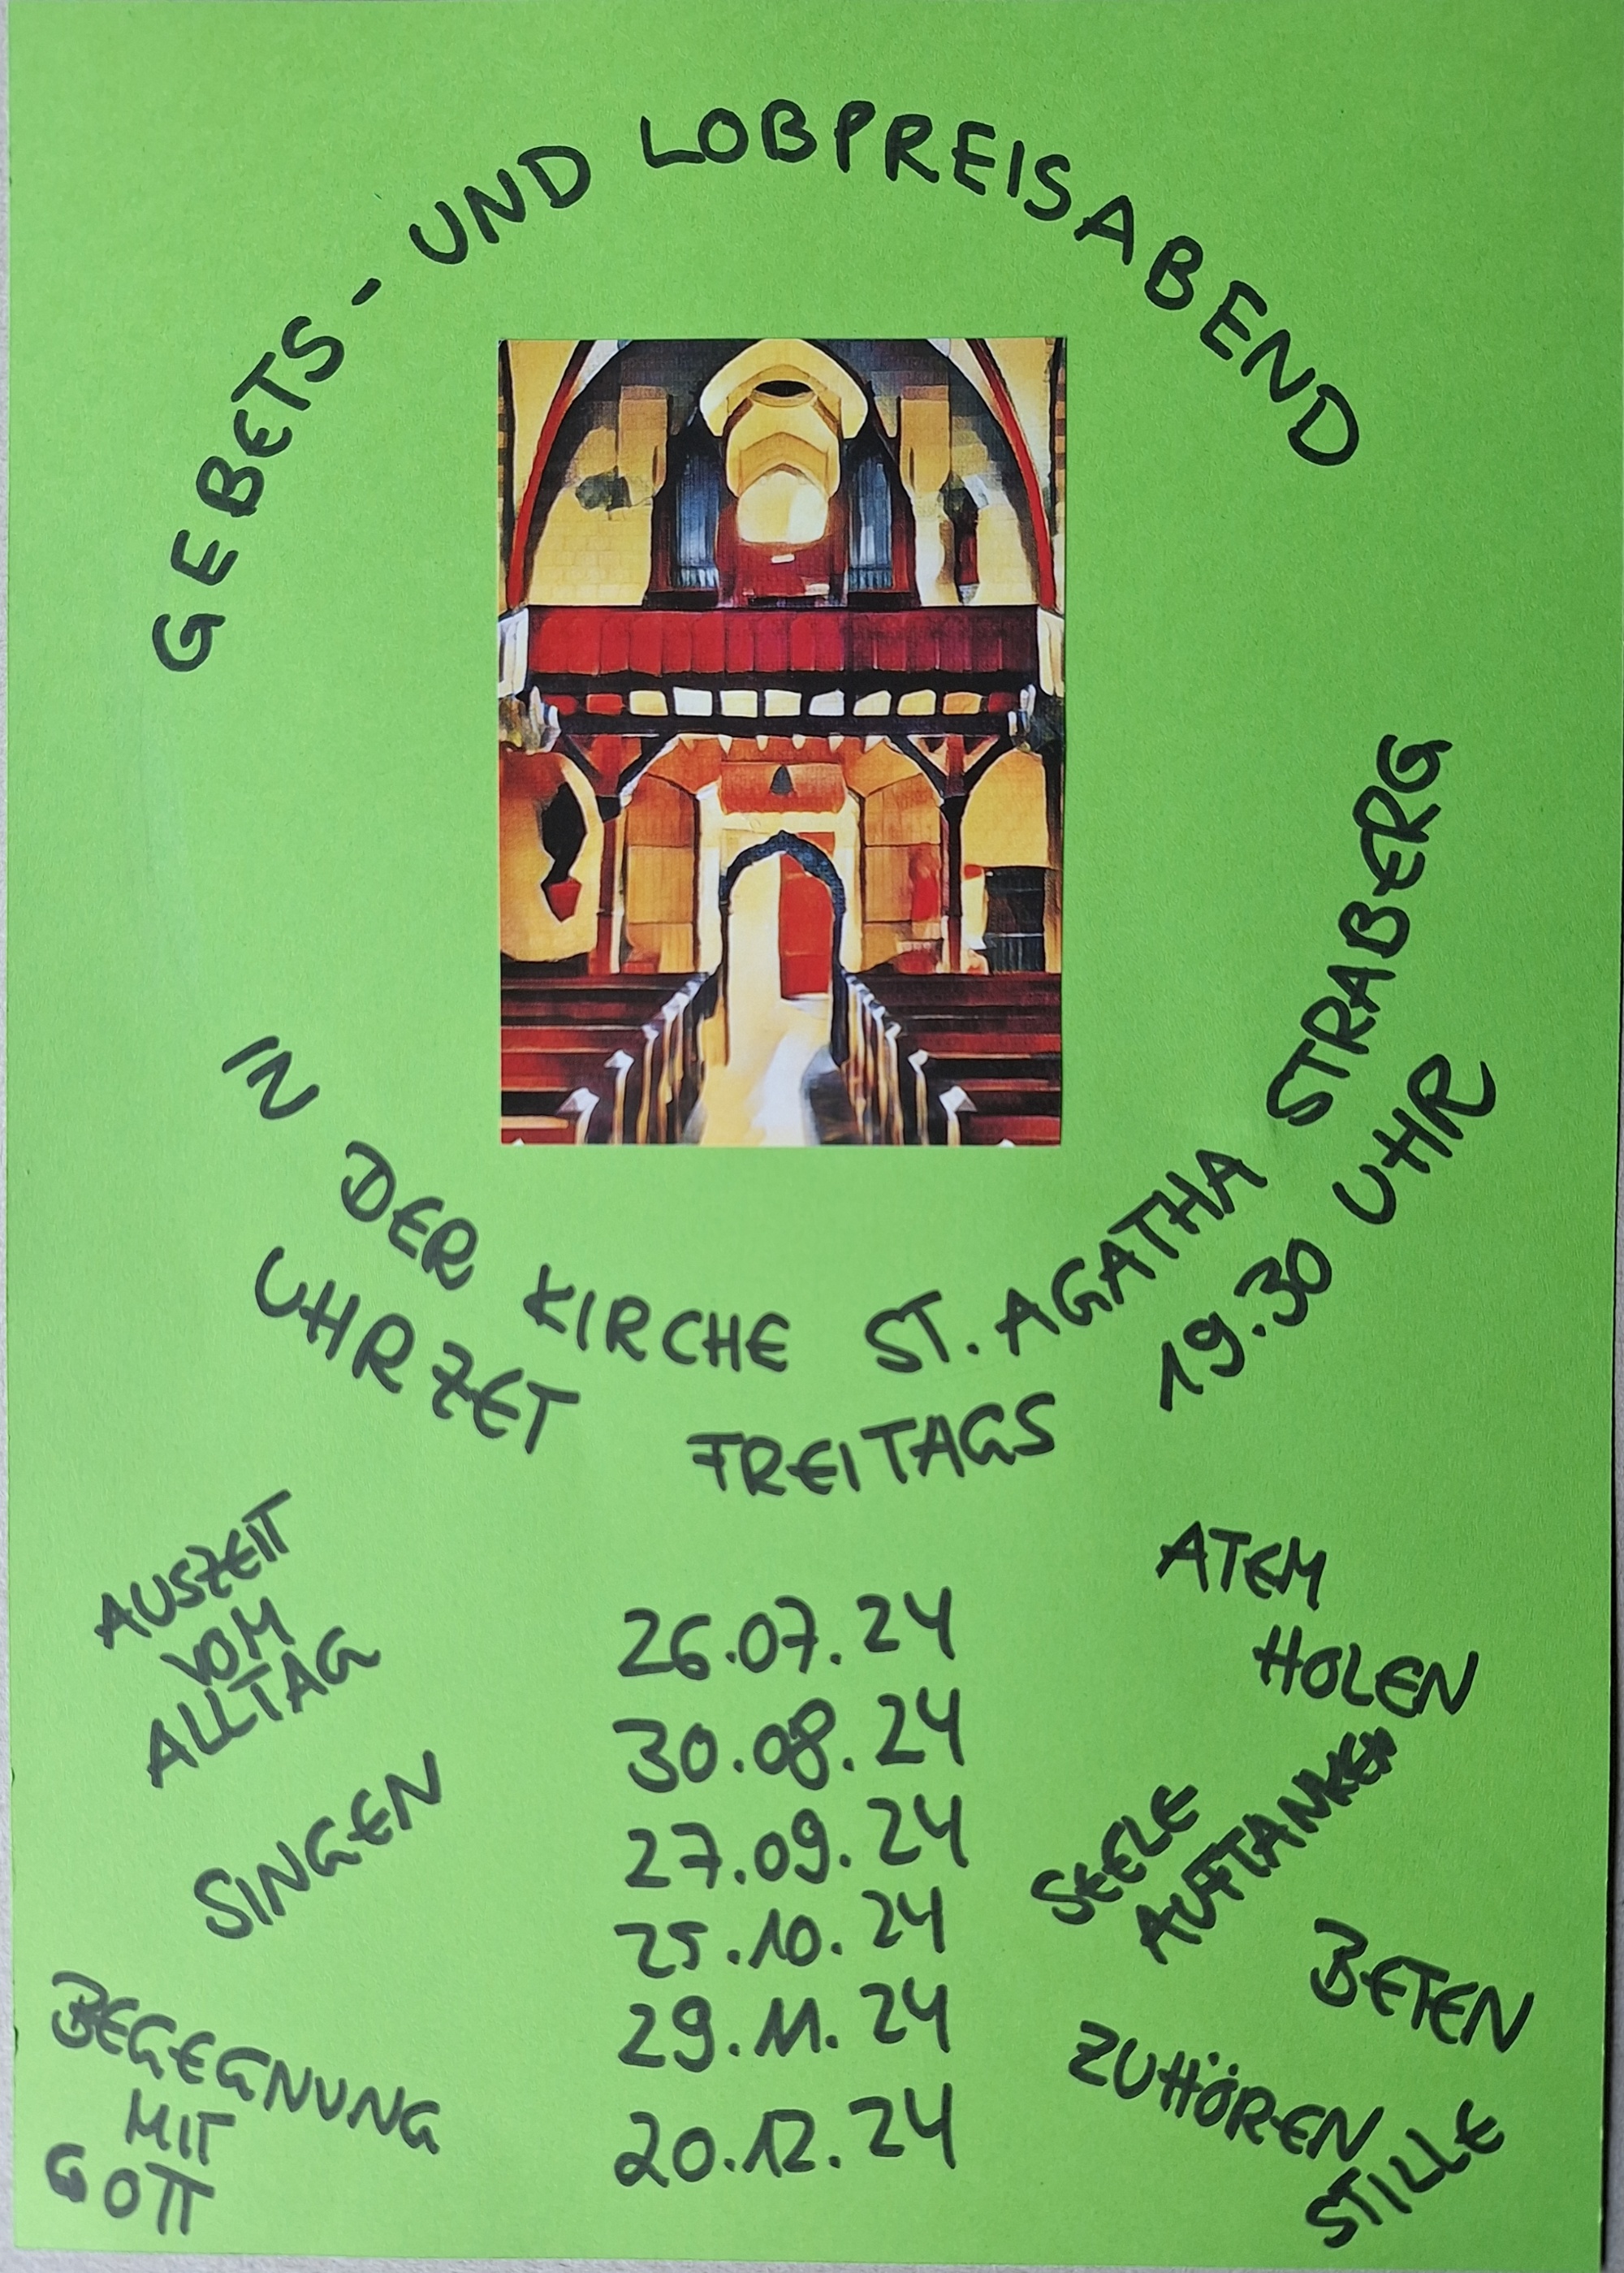 GEBETS- UND LOBPREISABEND
IN DER KIRCHE ST. AGATHA STRABERG
UHRZET FREITAGS 19.30 UHR
AUSZEIT
VOM
ALLTAG
SINGEN
BEGEGNUNG
MIT
GOTT
26.07.24
30.08.24
27.09.24
25.10.24
29.11.24
20.12.24
ATEM
HOLEN
SEELE
AUFTANKEN
BETEN
ZUHÖREN
STILLE